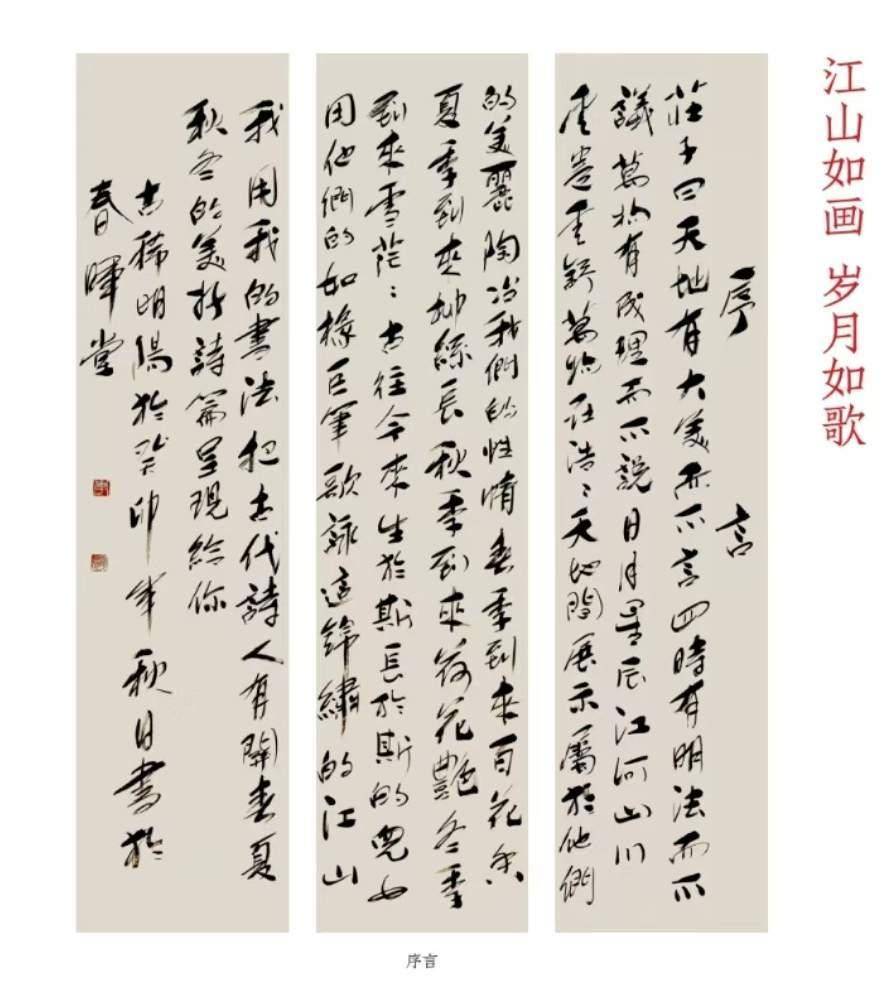 江山如画 岁月如歌
序 言
莊子曰天地有大美而不言四時有明法而不
議萬物有成理而不說日月星辰江河山川
萬物在浩〻天地間展示屬於他們
的美麗陶冶我們的性情春季到來百花香
夏季到來柳絲長秋季到來荷花艷冬季
到來雪茫〻古往今來生於斯長於斯的兒女
用他們的如椽巨筆歌詠這錦繡的江山
我用我的書法把古代詩人有關春夏
秋冬的美好詩篇呈現給你
古稀明陽於癸卯年秋日書於
春暉堂
序言